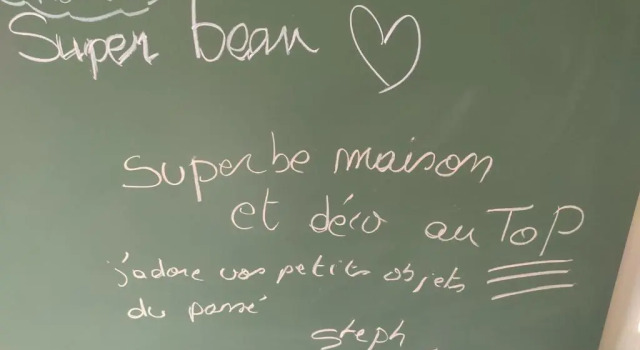 Super beau
Superbe maison
et déco au ToP
j'adore vos petits objets
du passé
Steph